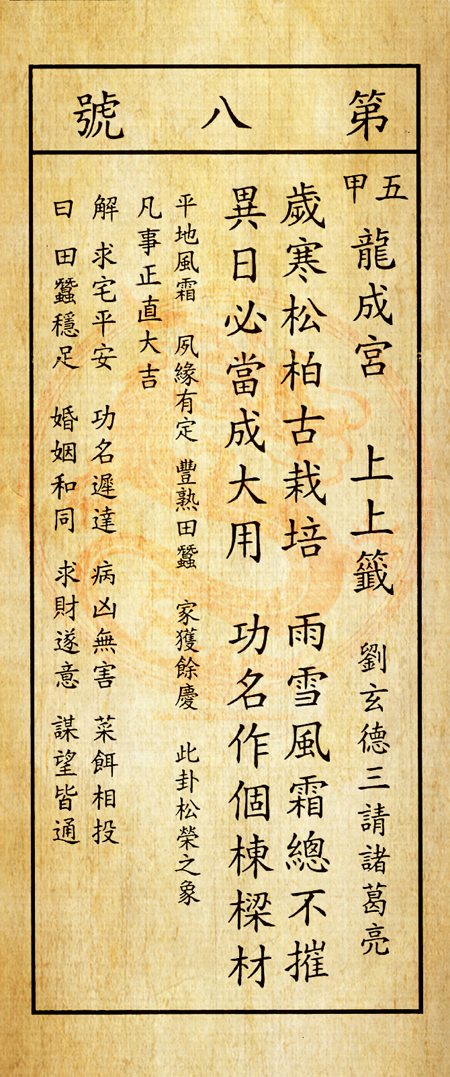 第八號
五甲 龍成宮 上上籤 劉玄德三請諸葛亮
歲寒松柏古栽培 雨雪風霜總不摧
異日必當成大用 功名作個棟樑材
平地風霜 夙緣有定 豐熟田蠶 家獲餘慶 此卦松榮之象
凡事正直大吉
解 求宅平安 功名遲達 病凶無害 菜餌相投
曰 田蠶穩足 婚姻和同 求財遂意 謀望皆通